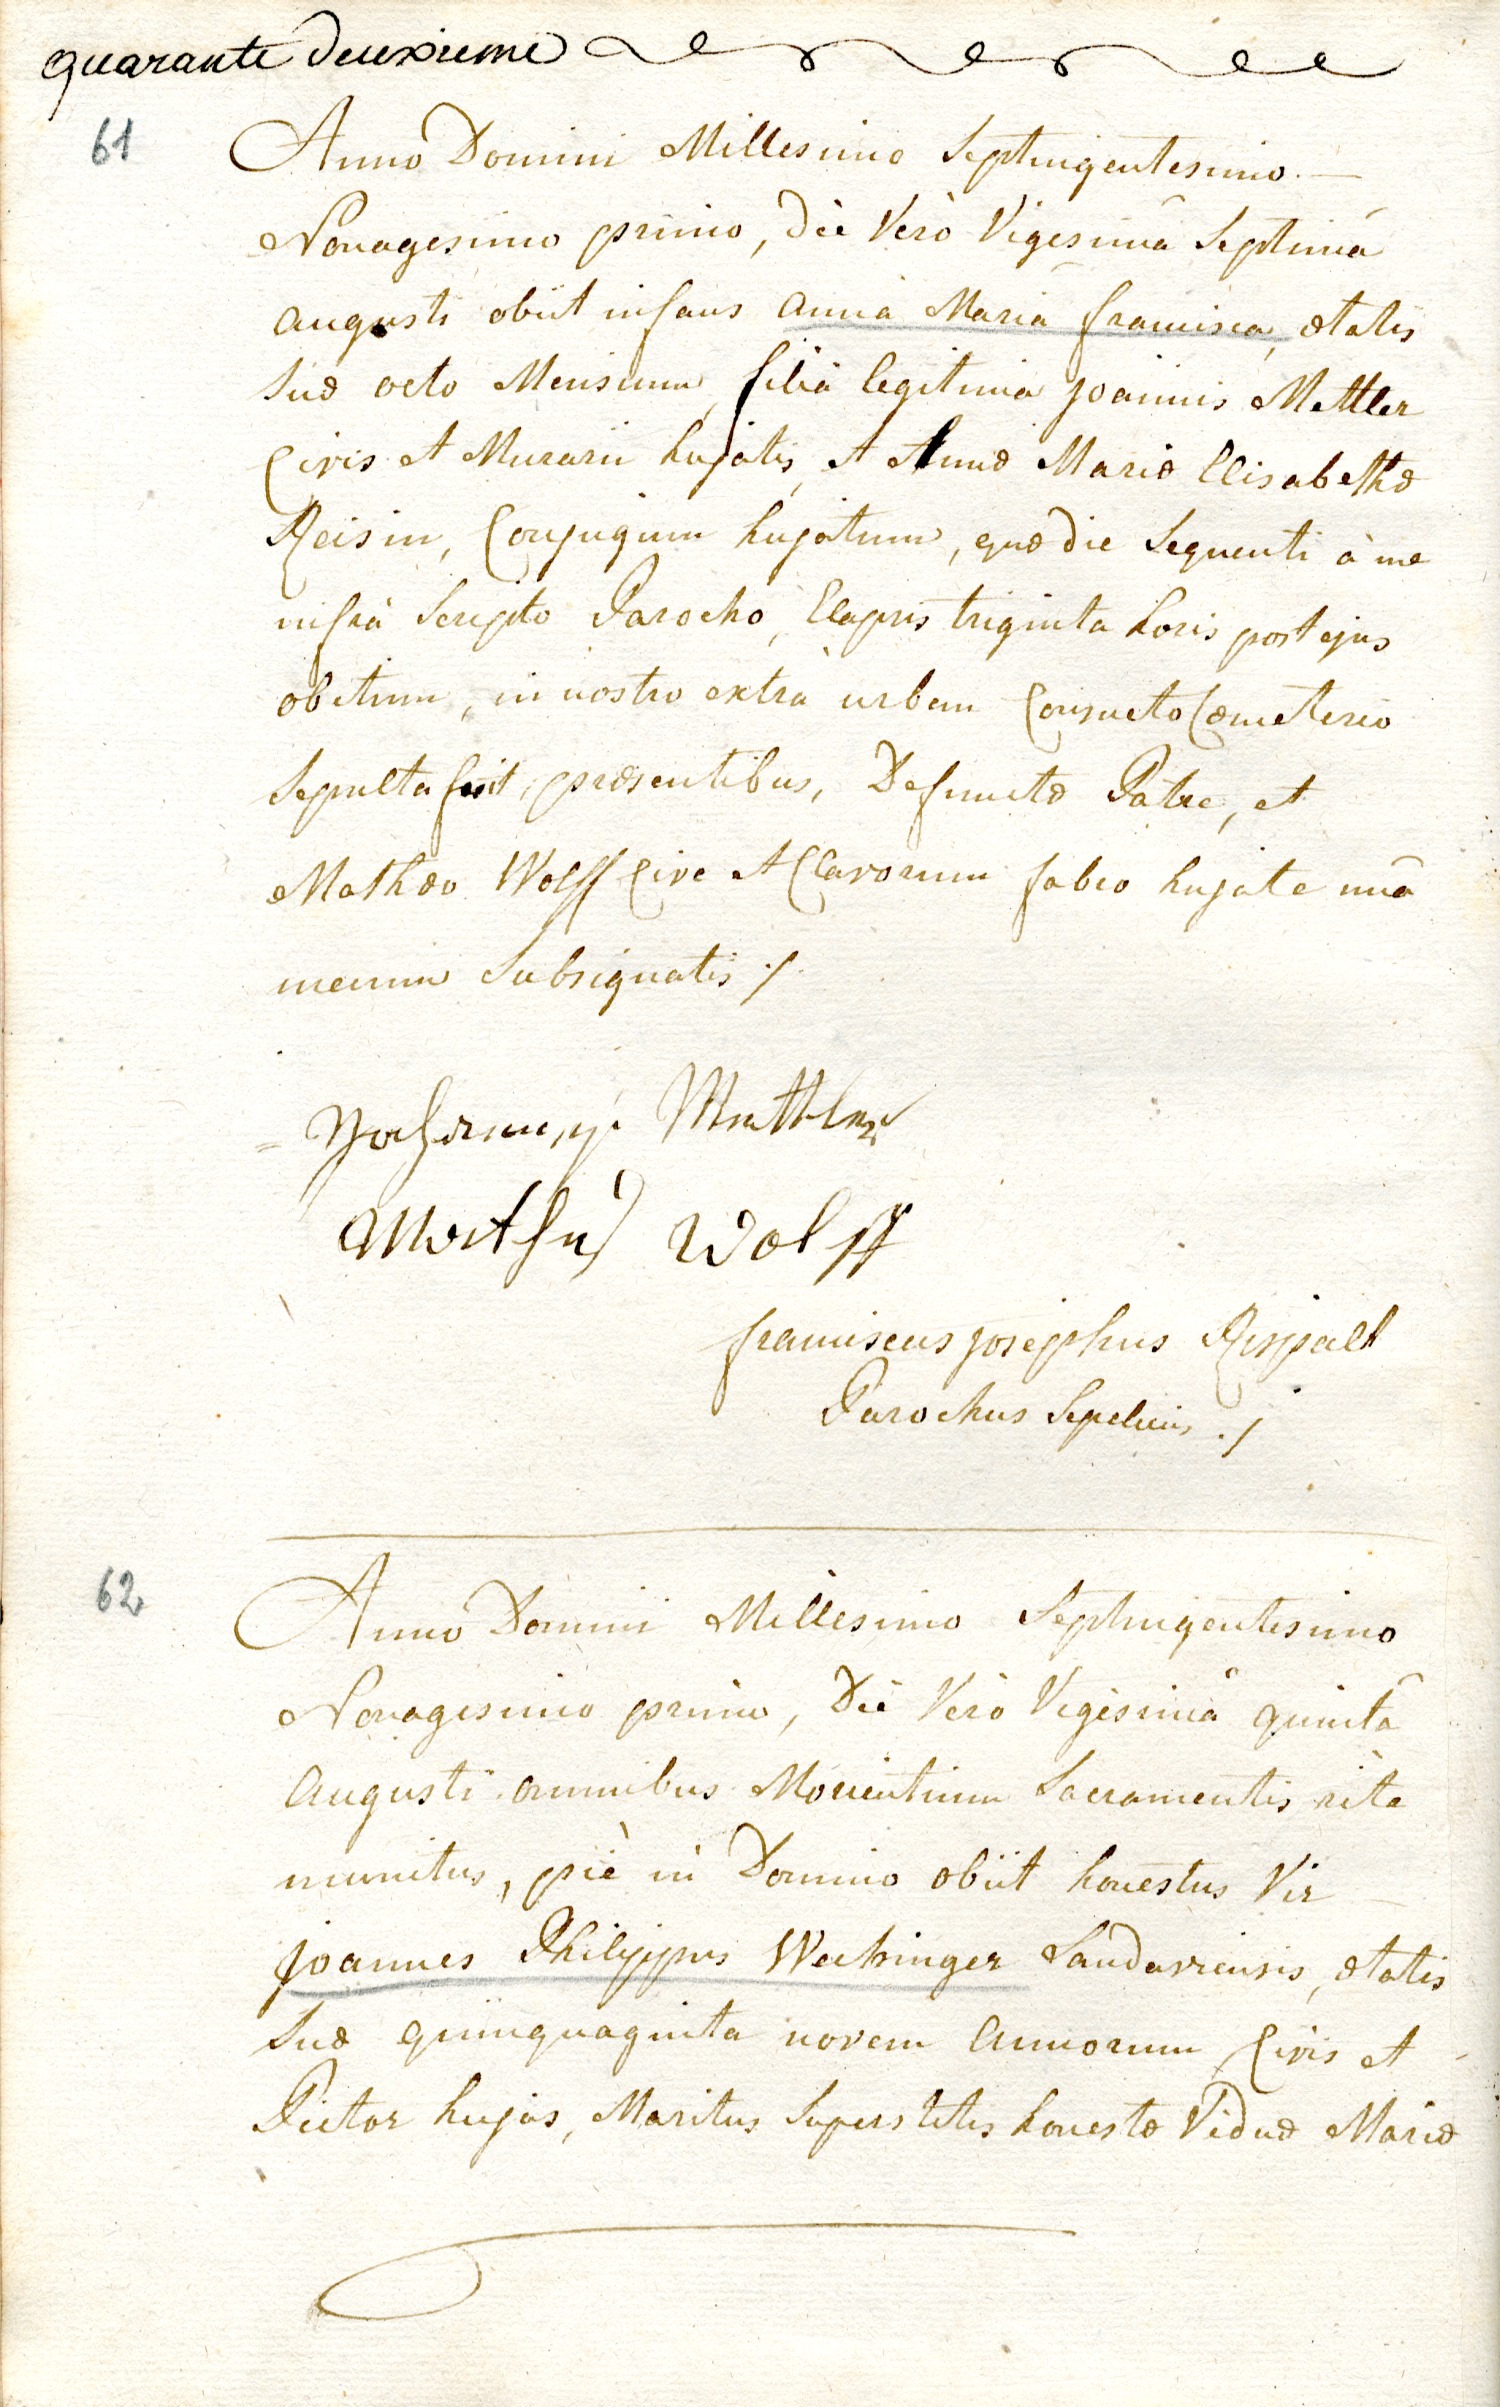 quarante deuxieme
61
Anno Domini Millesimo Septingentesimo
Nonagesimo primo, die Verò Vigesimâ Septimâ
augusti obiit infans anna Maria francisca, ætatis
suæ octo Mensium, filia legitima joannis Mettler
Civis et Murarii hujatis, et Annæ Mariæ Elisabethæ
Reisin, Conjugum hujatum, quæ die Sequenti à me
infrà Scripto Parocho, Elapsis triginta horis post ejus
obitum, in nostro extrà urbem Consueto Cœmeterio
Sepulta fuit, præsentibus, Defunctæ Patre, et
Mathæo Wolff Cive et Clavorum fabro hujate unà
mecum Subsignatis ./.
Mathis Wolff
franciscus josephus Rispalt
Parochus Sepeliens ./.
62
Anno Domini Millesimo Septingentesimo
Nonagesimo primo, Die Verò Vigesimâ quintâ
Augusti omnibus Morientium Sacramentis rite
munitus, piè in Domino obiit honestus Vir
joannes Philippus Wachinger Landaviensis, ætatis
suæ quinquaginta novem annorum Civis et
Pictor hujas, Maritus Superstitis honestæ Viduæ Mariæ